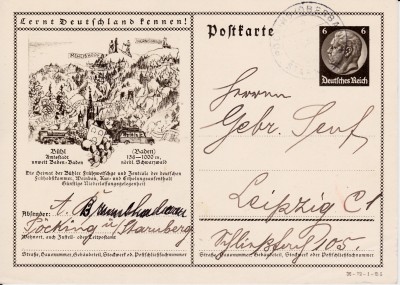 Lernt Deutschland kennen!
Postkarte
6 6
Deutsches Reich
Bühl (Baden)
Amtsstadt 136–1000 m,
unweit Baden-Baden nördl. Schwarzwald
Die Heimat der Bühler Frühzwetschge und Zentrale der deutschen
Frühobstkammer, Weinbau, Kur- und Erholungsaufenthalt
Günstige Niederlassungsgelegenheit
Absender: A.
Pöcking b/ Starnberg
Wohnort, auch Zustell- oder Leitpostamt
Straße, Hausnummer, Gebäudeteil, Stockwerk od. Postschließfachnummer
Herren
Gebr. Senf
Leipzig C 1
Schließfach 105.
Straße, Hausnummer, Gebäudeteil, Stockwerk od. Postschließfachnummer